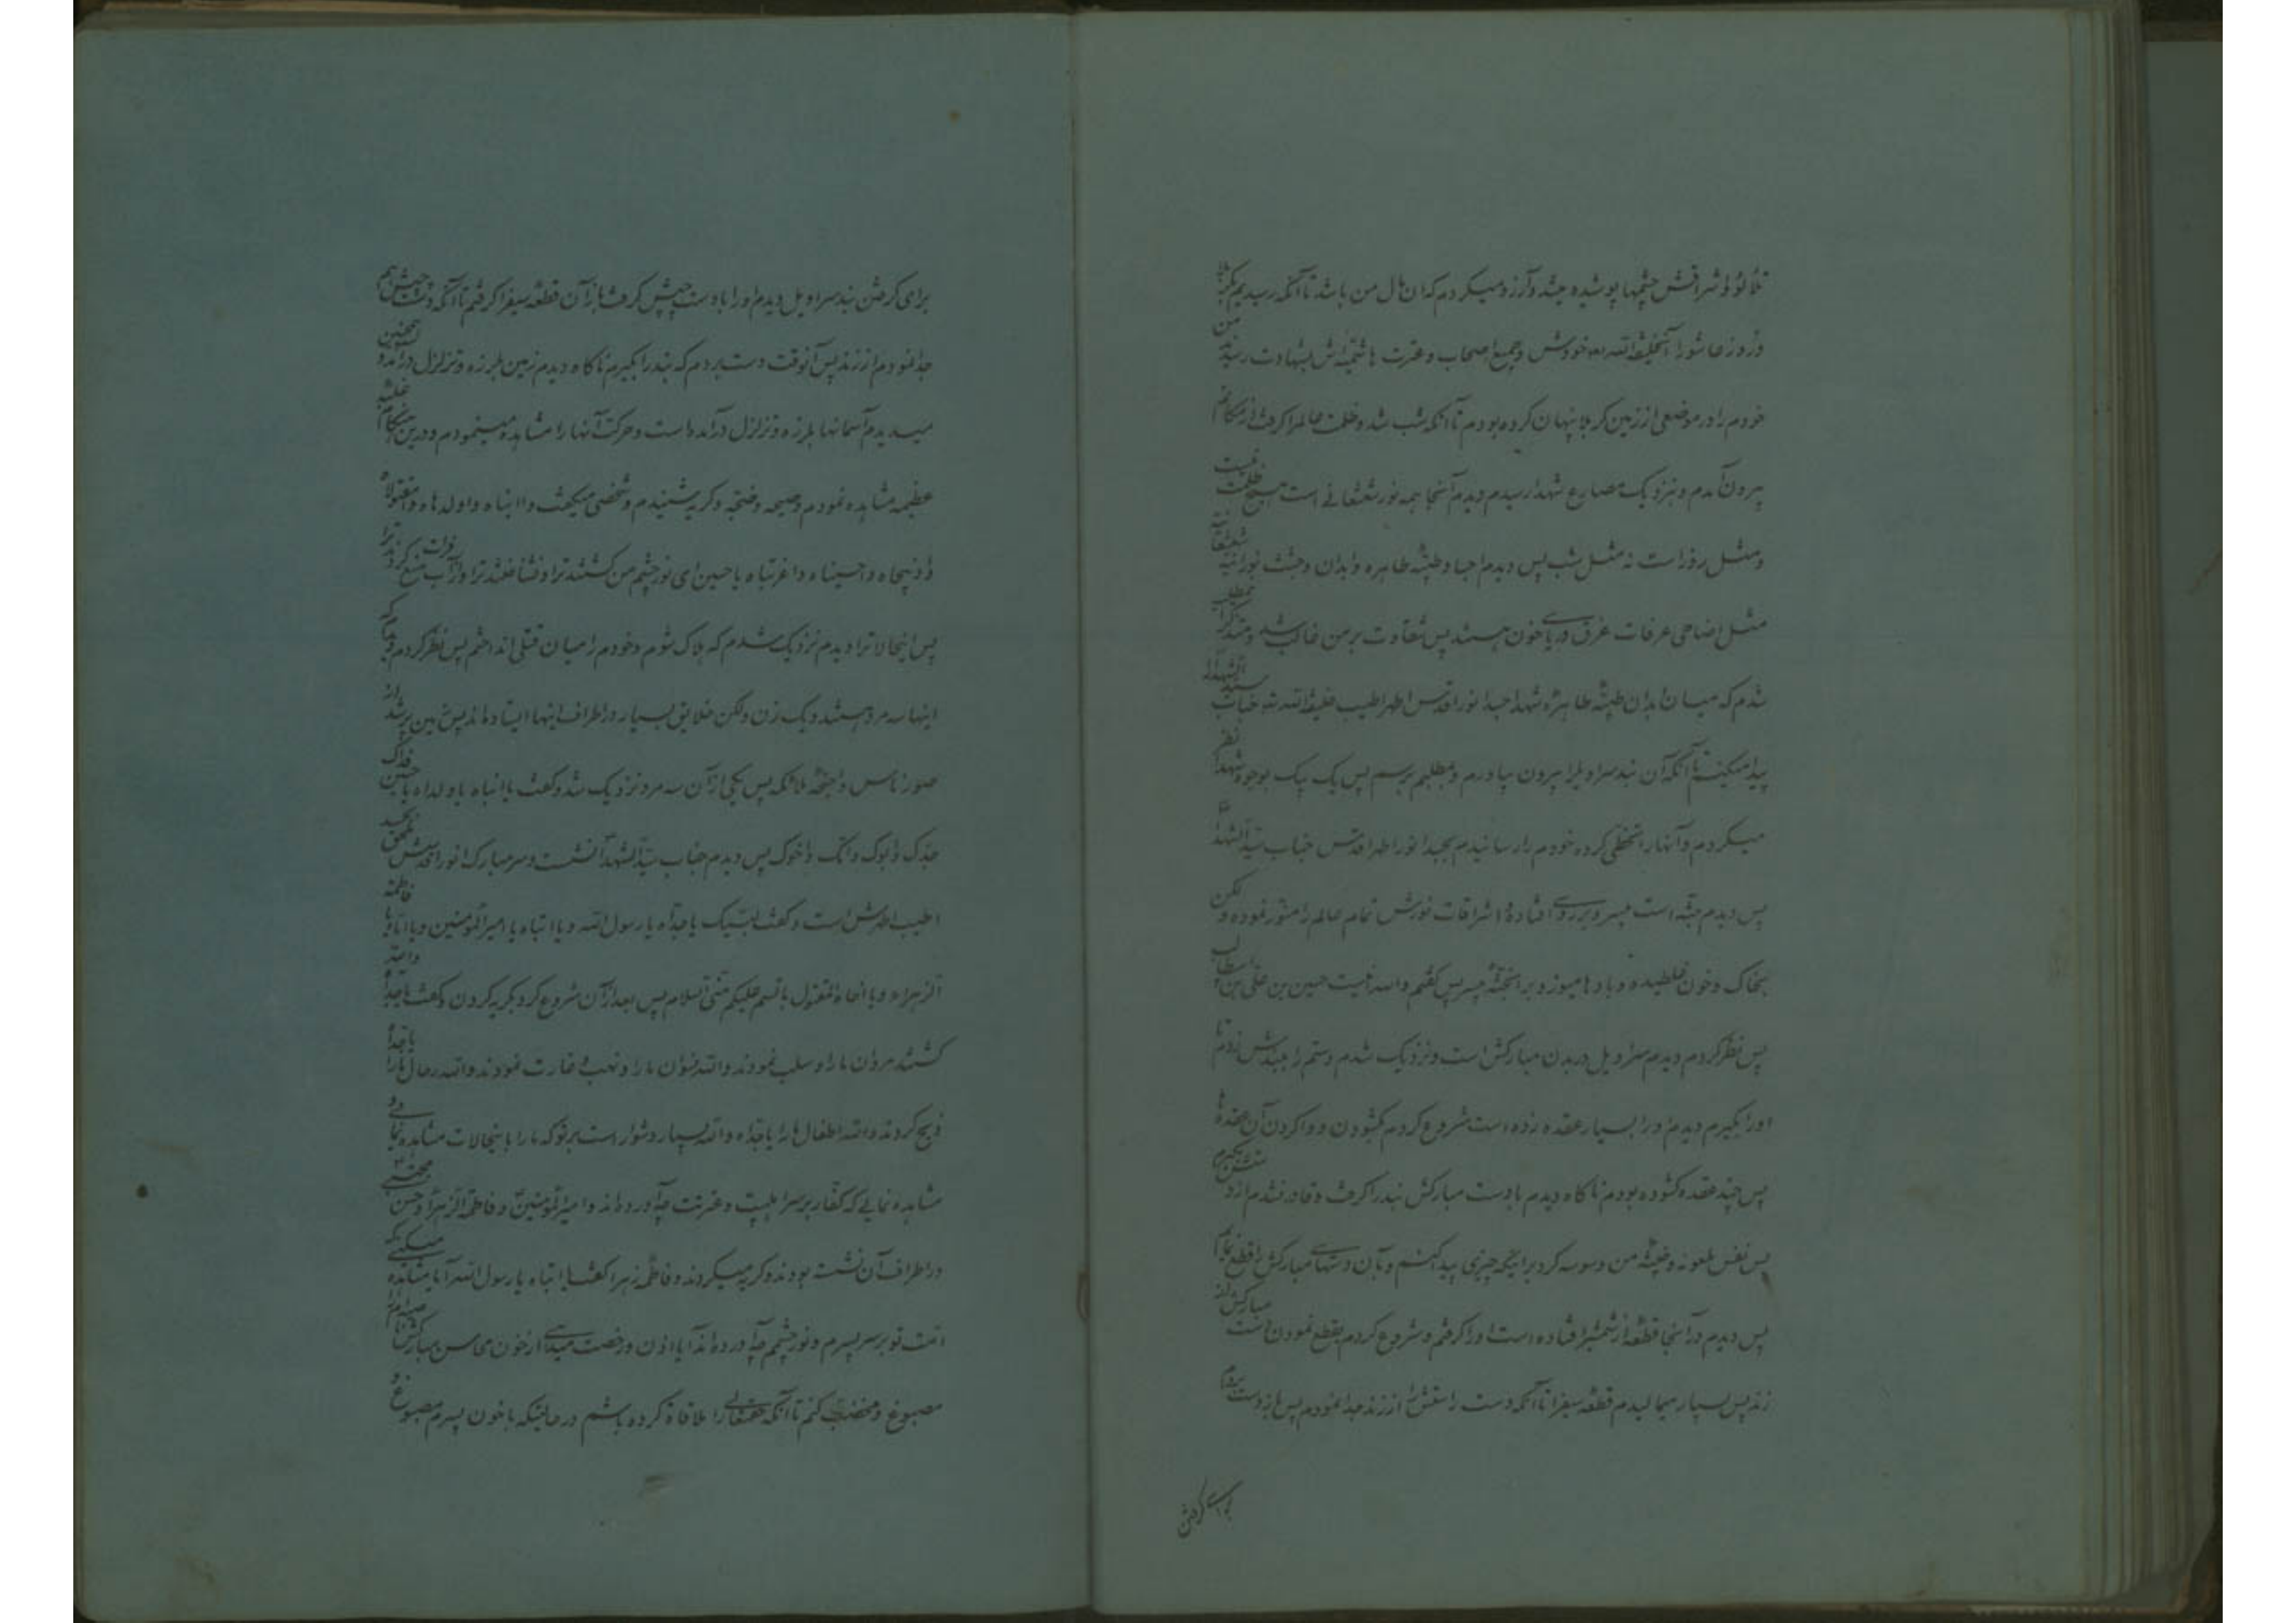 تلألؤ و اشراقش چشمها پوشیده میشد و آرزو میکردم که آن مال من باشد تا آنکه رسیدیم بکربلا
و روز عاشورا آنخلیفة الله بعد خودش و جمیع اصحاب و عترت هاشمیه‌اش بشهادت رسیدند من
خودم را در موضعی از زمین کربلا پنهان کرده بودم تا آنکه شب شد و ظلمت عالم را گرفت از مکانم
بیرون آمدم و بنزدیک مصارع شهدا رسیدم دیدم آنجا همه نور شعشعانی است هیچ ظلمت نیست
و مثل روز است نه مثل شب پس دیدم اجساد طیبه طاهره و ابدان و جثث نورانیه شعشعانیه
مثل اضاحی عرفات غرق دریای خون هستند پس شقاوت بر من غالب شد و متذکر آن مطلب
شدم که میان ابدان طیبه طاهره شهدا جسد انور اقدس اطهر اطیب خلیفة الله جناب سید الشهدا را
پیدا میکنم تا آنکه آن بند سراویل را بیرون بیاورم و بمطلبم برسم پس یک یک بوجوه شهدا نظر
میکردم و آنها را تخطی کرده خودم را رسانیدم بجسد انور اطهر اقدس جناب سید الشهدا
پس دیدم جثه است بیسر و بر روی افتاده اشراقات نورش تمام عالم را منور نموده و لکن
بخاک و خون غلطیده و بادها میوزد بر آنجثه بیسر پس گفتم والله اینست حسین بن علی بن ابیطالب
پس نظر کردم دیدم سراویل در بدن مبارکش است و نزدیک شدم و دستم را ببندش زدم تا
او را بگیرم دیدم او را بسیار عقده زده است شروع کردم بگشودن و وا کردن آن عقده ها
پس چند عقده گشوده بودم ناگاه دیدم با دست مبارکش بند را گرفت و قادر نشدم از دستش بگیرم
پس نفس ملعونه و خبیثه من وسوسه کرد بر اینکه چیزی پیدا کنم و بآن دستهای مبارکش را قطع نمایم
پس دیدم در آنجا قطعه از شمشیر افتاده است او را گرفتم و شروع کردم بقطع نمودن دست مبارکش از
زند پس بسیار میمالیدم قطعه سیف را تا آنکه دست راستش را از زند جدا نمودم پس باز دست بردم
برای گرفتن
برای گرفتن بند سراویل دیدم او را با دست چپش گرفت باز آن قطعه سیف را گرفتم تا آنکه دست چپش را هم
جدا نمودم از زند پس آنوقت دست بردم که بند را بگیرم ناگاه دیدم زمین بلرزه و تزلزل درآمد و همچنین
میدیدم آسمانها بلرزه و تزلزل درآمده است و حرکت آنها را مشاهده مینمودم و در این هنگام غلبه
عظیمه مشاهده نمودم و صیحه و ضجه و گریه شنیدم و شخصی میگفت وا ابناه وا ولداه وا مقتولاه
وا ذبیحاه وا حسیناه وا غربتاه یا حسین ای نور چشم من کشتند ترا و نشناختند ترا و از آب فرات منع کردند ترا
پس اینحالات را دیدم نزدیک شدم که هلاک شوم و خودم را میان قتلی انداختم پس نظر کردم دیدم که
اینها سه مرد هستند و یک زن و لکن خلایق بسیار در اطراف اینها ایستاده‌اند پس زمین پر شد از
صور ناس و اجنحه ملائکه پس یکی از آن سه مرد نزدیک شد و گفت یا ابناه یا ولداه یا حسین فداک
جدک و ابوک و امک و اخوک پس دیدم جناب سید الشهدا نشست و سر مبارک انور اقدسش
اطیب اطهرش است و گفت لبیک یا جداه یا رسول الله و یا ابتاه یا امیر المؤمنین و یا اماه یا فاطمه
الزهراء و یا اخاه المقتول بالسم علیکم منی السلام پس بعد از آن شروع کرد بگریه کردن و گفت یا جداه والله
کشتند مردان ما را و سلب نمودند والله نسوان ما را و نهب و غارت نمودند والله رحال ما را یا جداه
ذبح کردند والله اطفال ما را یا جداه والله بسیار دشوار است بر تو که ما را باینحالات مشاهده نمائی و
مشاهده نمایی که کفار بر سر اهلبیت و عترتت چه آورده‌اند و امیر المؤمنین و فاطمة الزهرا و حسن مجتبی
در اطراف آن نشسته بودند و گریه میکردند و فاطمه زهرا گفت یا ابتاه یا رسول الله آیا مشاهده میکنی که
امت تو بر سر پسرم و نور چشمم چه آورده‌اند آیا اذن و رخصت میدهی از خون محاسن مبارکش
مصبوغ و مخضب کنم تا آنکه حقتعالی را ملاقاة کرده باشم در حالتیکه با خون پسرم مصبوغ و